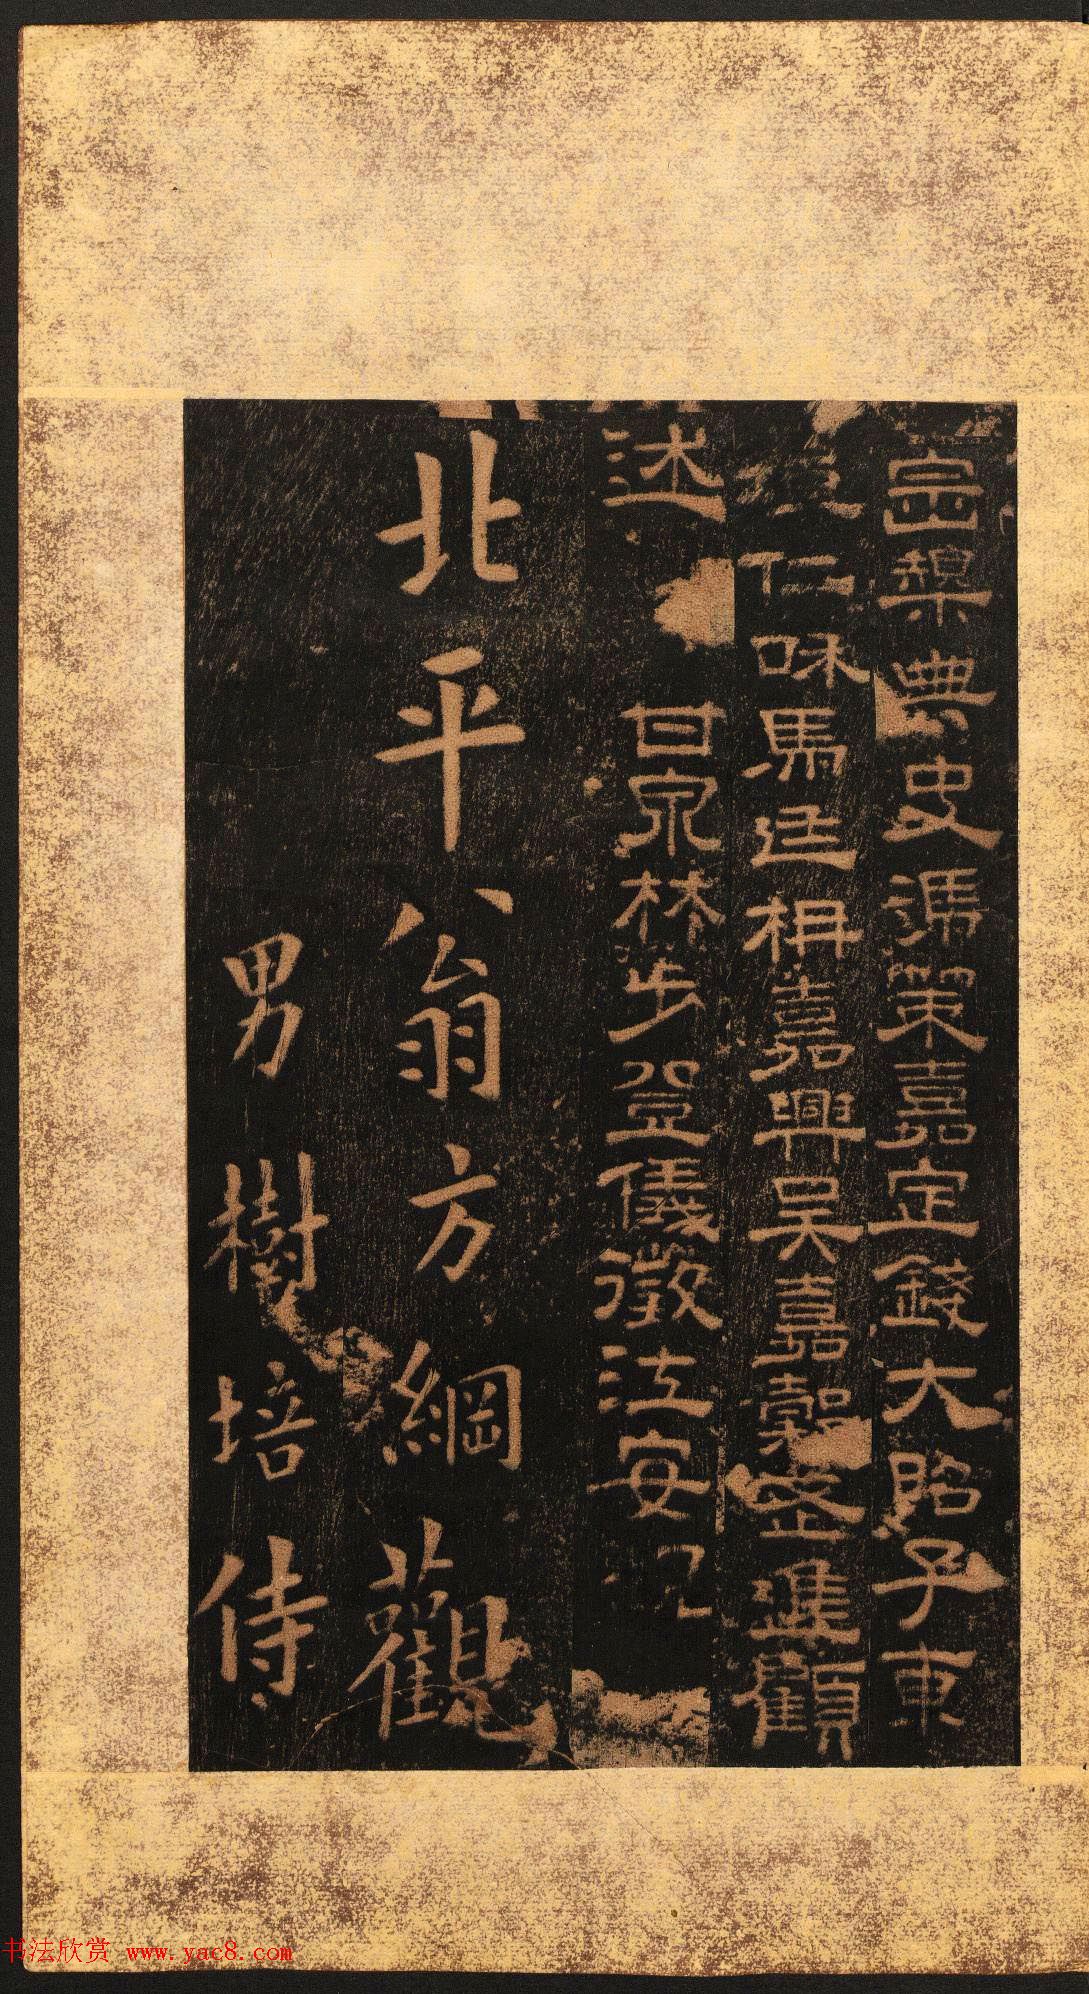 典史馮策嘉定錢大昭子東
垣仁和馬廷枏嘉興吳嘉穀盛進顧
述甘泉林步登儀徵江安
北平翁方綱觀
男樹培侍
书法欣赏 www.yac8.com